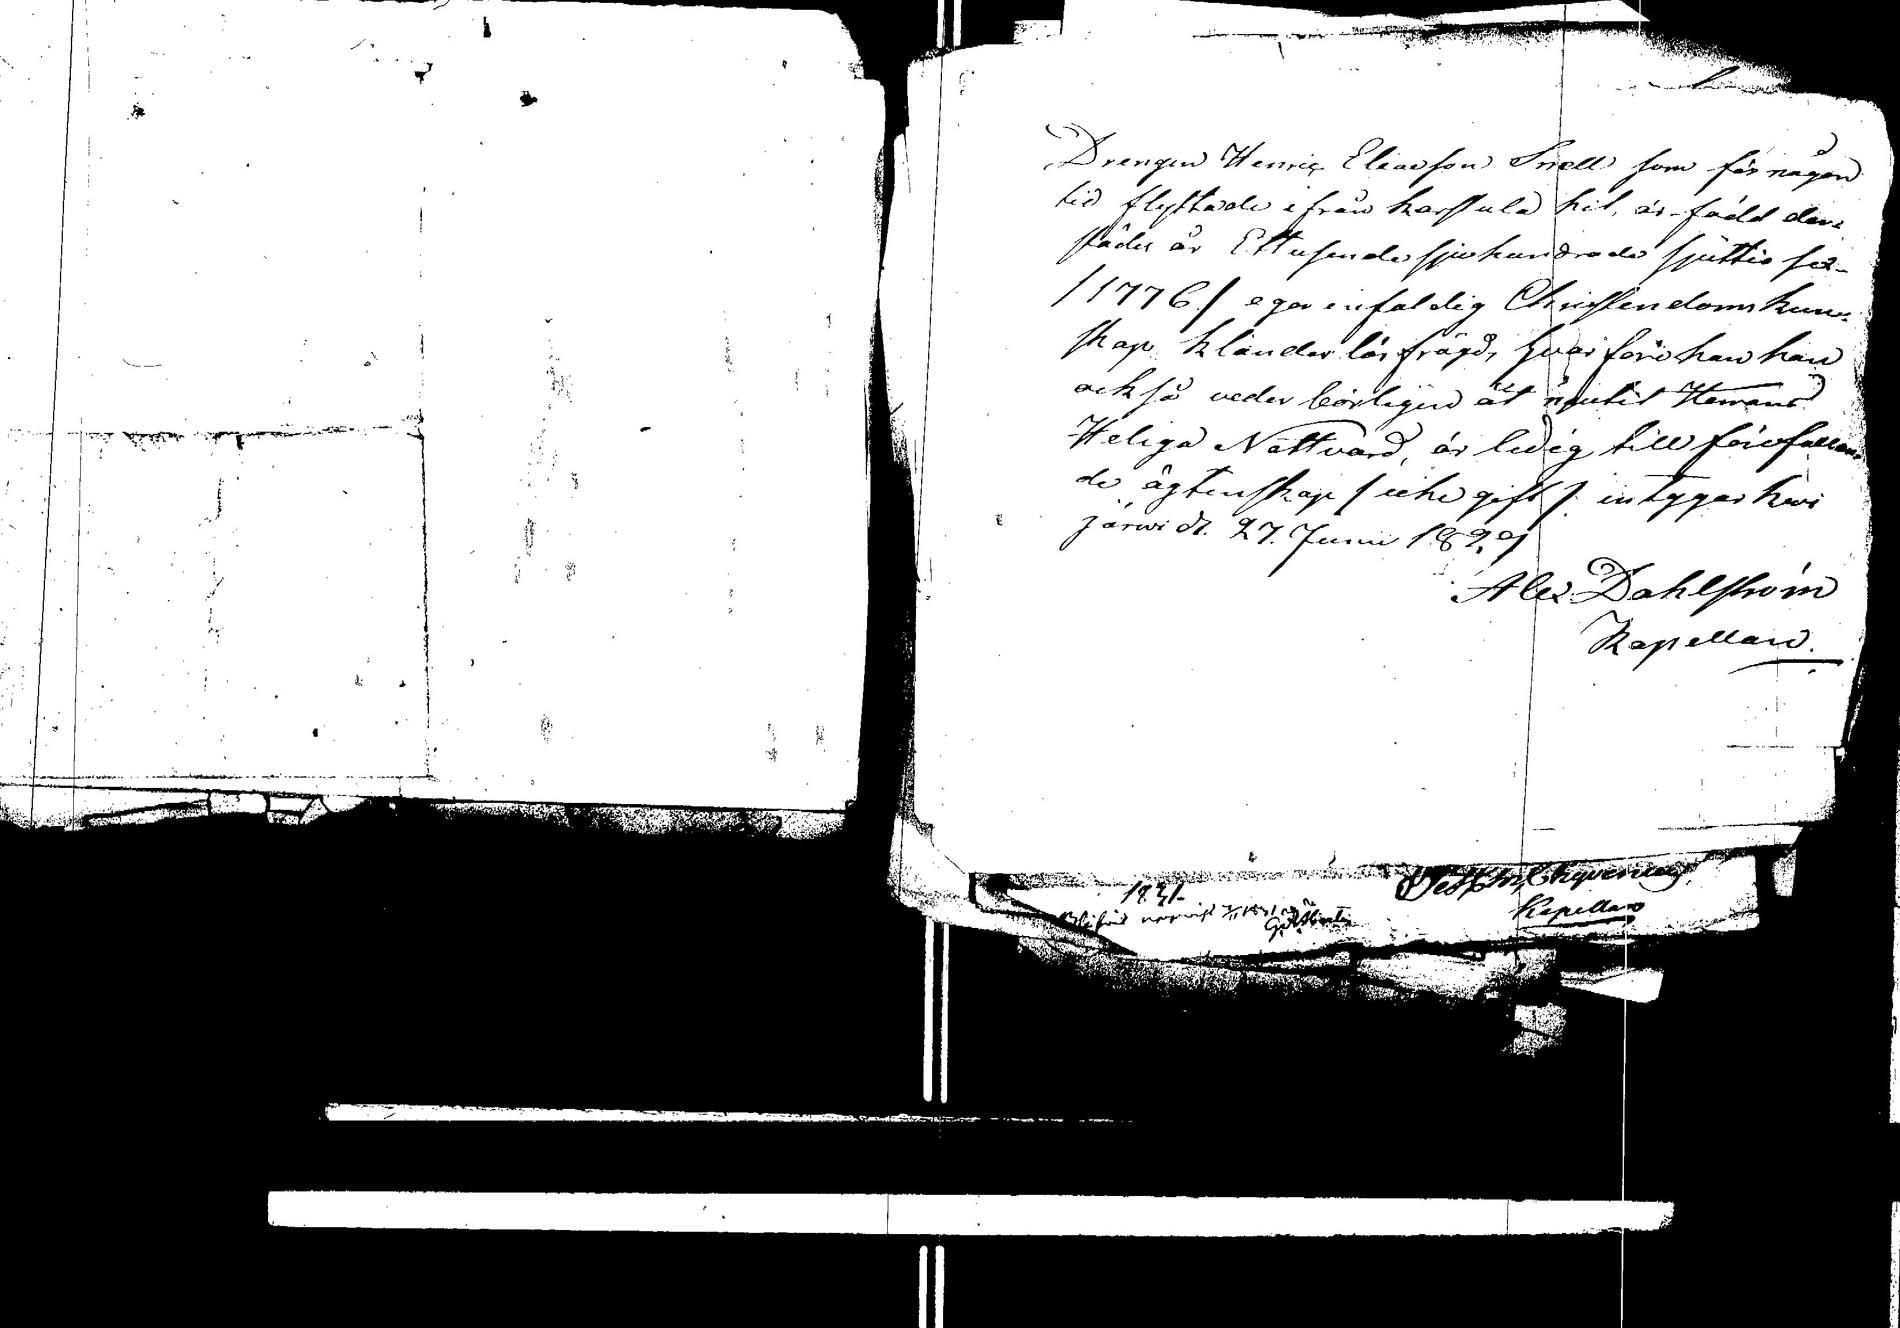 Drengen Henric Eliaeson Snell som för någon
tid flyttade ifrån Karstula hit, är född der-
städes år Ettusende sjuhundrade sjuttio sex-
/1776/ eger enfaldig Christendoms kun-
skap klander lös frägd, hvarföre han han
också vederbörligen åt niutit Herrans
Heliga Nattvard, är ledig till förefallan-
de ägtenskap / icke gift /. intygar Kivi
järwi d. 27. Junii 1829
Alex. Dahlström
Kapellan.
1831.
Kapellan